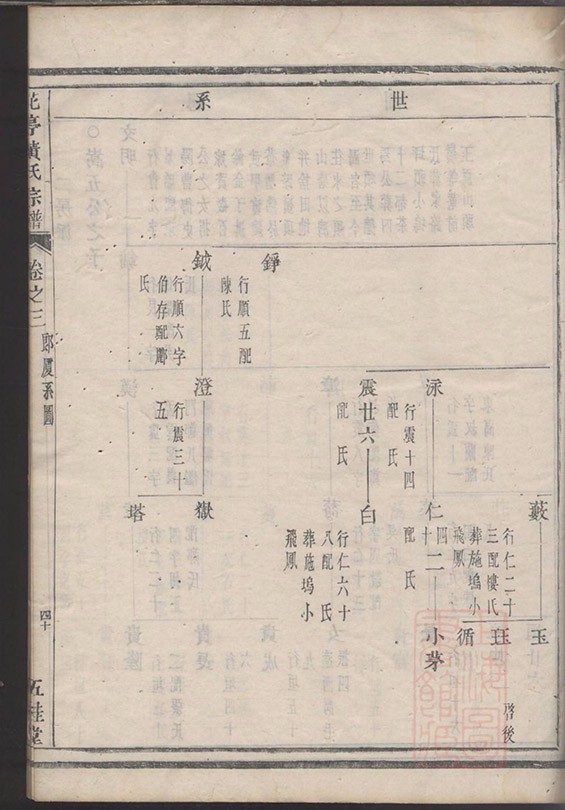 世系
玉
珏
循
啓後
藪
行仁二十
三配樓氏
葬施塢小
飛鳳
泳
行震十四
配氏
仁四十二
配氏
小茅
震廿六
配氏
白
行仁六十
八配氏
葬施塢小
飛鳳
錚
行順五配
陳氏
鉞
行順六字
伯存配郎
氏
澄
行震三十
五
嶽
塔
亭黃氏宗譜
卷之三
郎廈系圖
四十
五桂堂